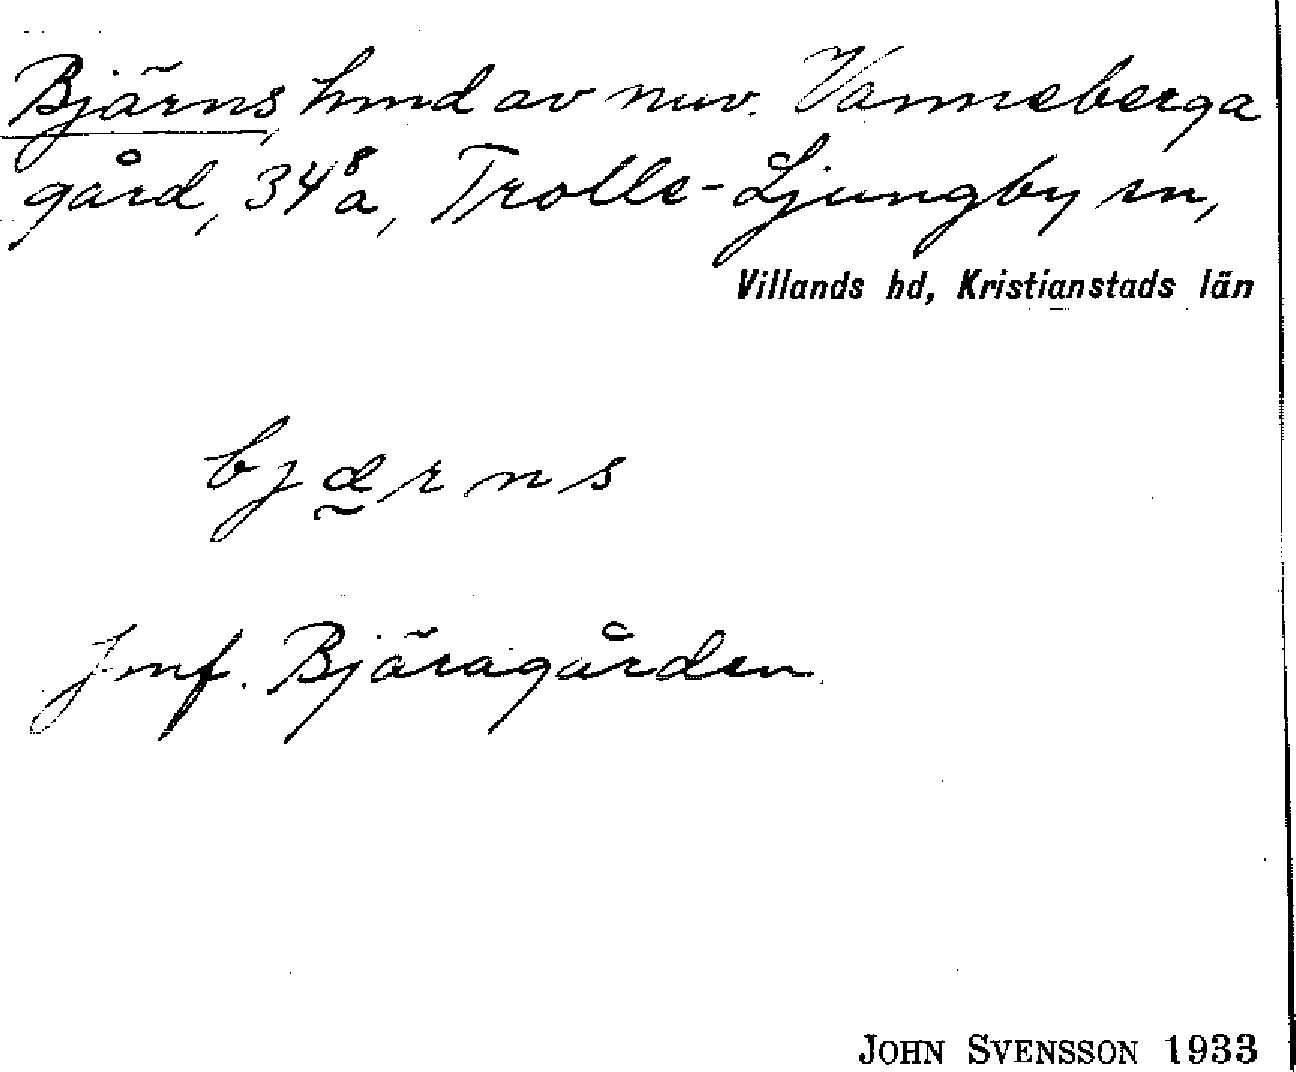 Bjärns, hmd av nuv. Vanneberga
gård, 34⁸a, Trolle-Ljungby sn,
Villands hd, Kristianstads län
bjærns
Jmf. Bjäragården
JOHN SVENSSON 1933